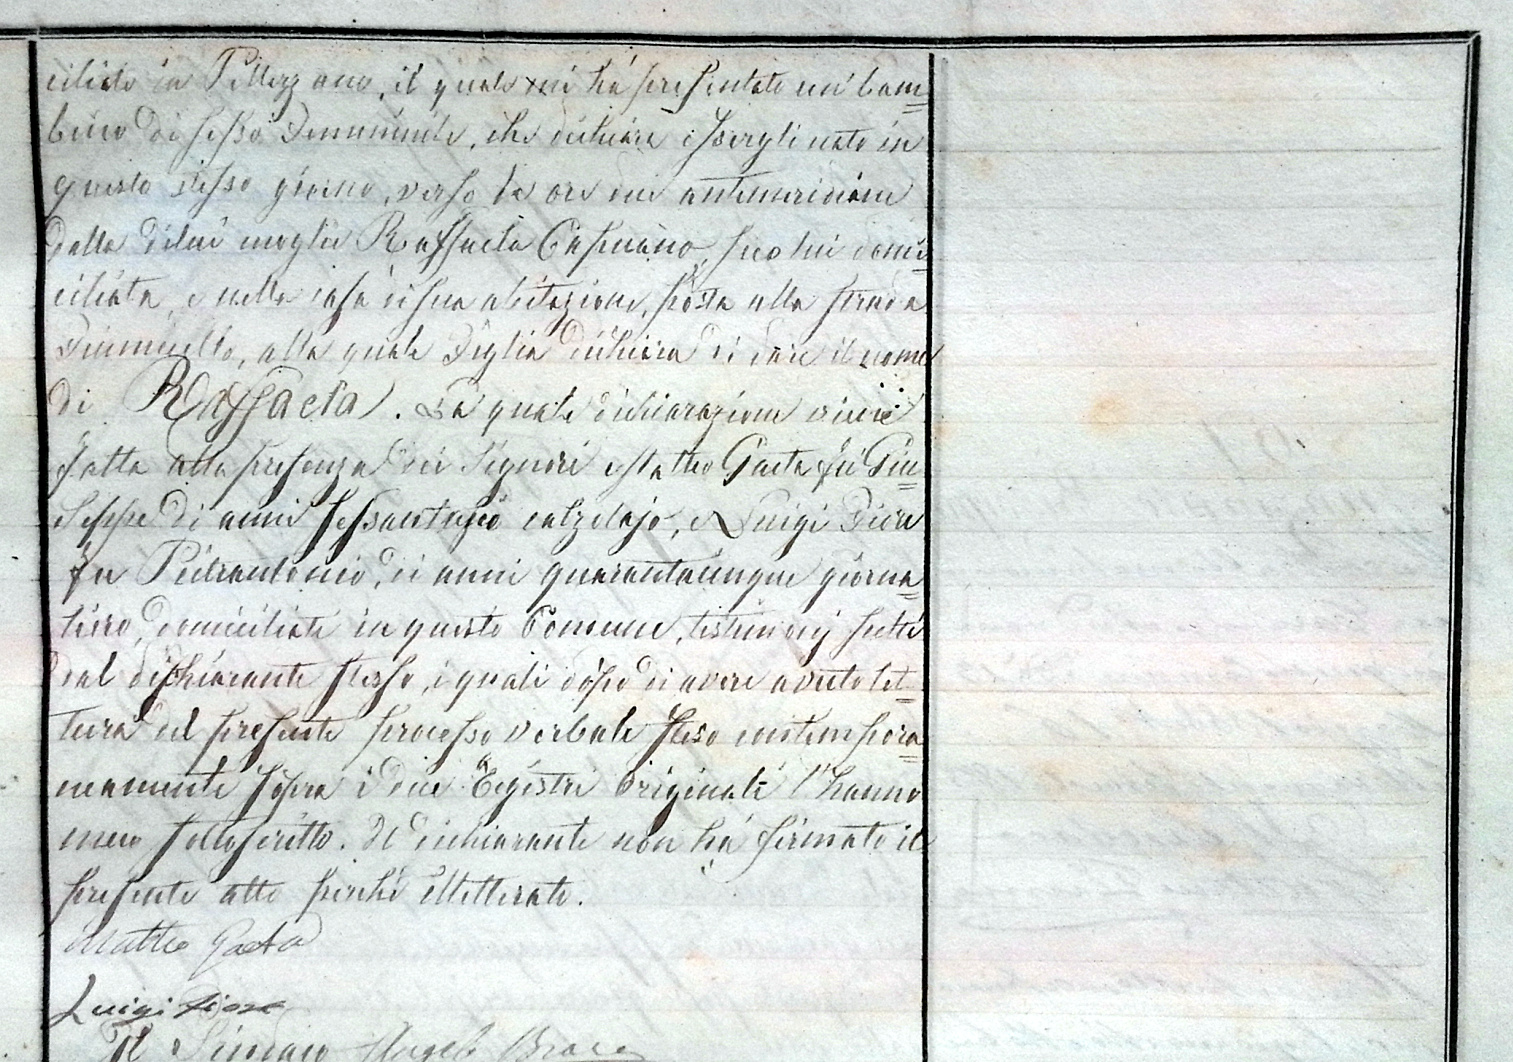 ciliato in Pellezzano, il quale mi há presentato un bam=
bino di sesso Femminile, che dichiara essergli nato in
questo stesso giorno, verso le ore antimeridiane
dalla dilui moglie Raffaela Capuano, seco lui domi=
ciliata, e nella casa di sua abitazione, posta alla strada
alla quale Figlia dichiara di dare il nome
di Raffaela. La quale dichiarazione viene
fatta alla presenza dei Signori Matteo Gaeta fu Giu=
seppe di anni sessantasei calzolajo, e Luigi Fiore
fu Pietrantonio, di anni quarantacinque giorna=
liero, domiciliati in questo Comune, testimonj scelti
dal dichiarante stesso, i quali dopo di avere avuto let=
tura del presente processo verbale steso contempora=
neamente sopra i due Registri originali l'hanno
meco sottoscritto. Il dichiarante non há firmato il
presente atto perché illetterato.
Matteo Gaeta
Luigi Fiore
Il Sindaco Angelo